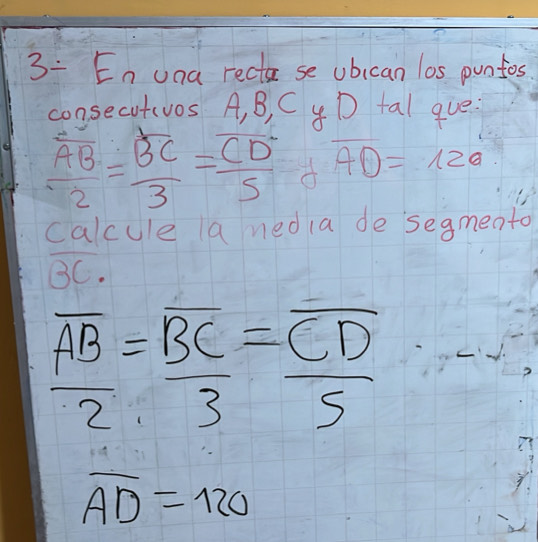 3- En una recta se ubican los puntos
consecutivos A, B, C y D tal que:
AB/2 = BC/3 = CD/5 y AD = 120
Calcule la media de segmento
BC.
AB/2 = BC/3 = CD/5
AD = 120